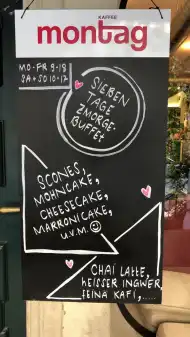 KAFFEE
montag
MO-FR 9-18
SA+SO 10-17
SIEBEN
TAGE
ZMORGE-
BUFFET
SCONES,
MOHNCAKE,
CHEESECAKE,
MARRONICAKE,
U.V.M. ☺
CHAI LATTE,
HEISSER INGWER,
FEINA KAFI,.....